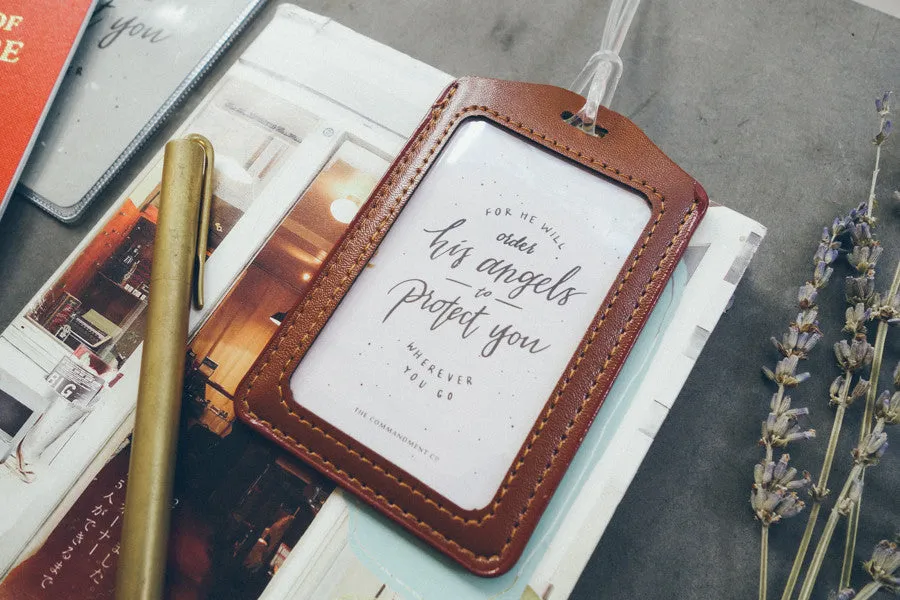 OF
E
you
FOR HE WILL
order
his angels
to
protect you
WHEREVER
YOU GO
THE COMMANDMENT CO